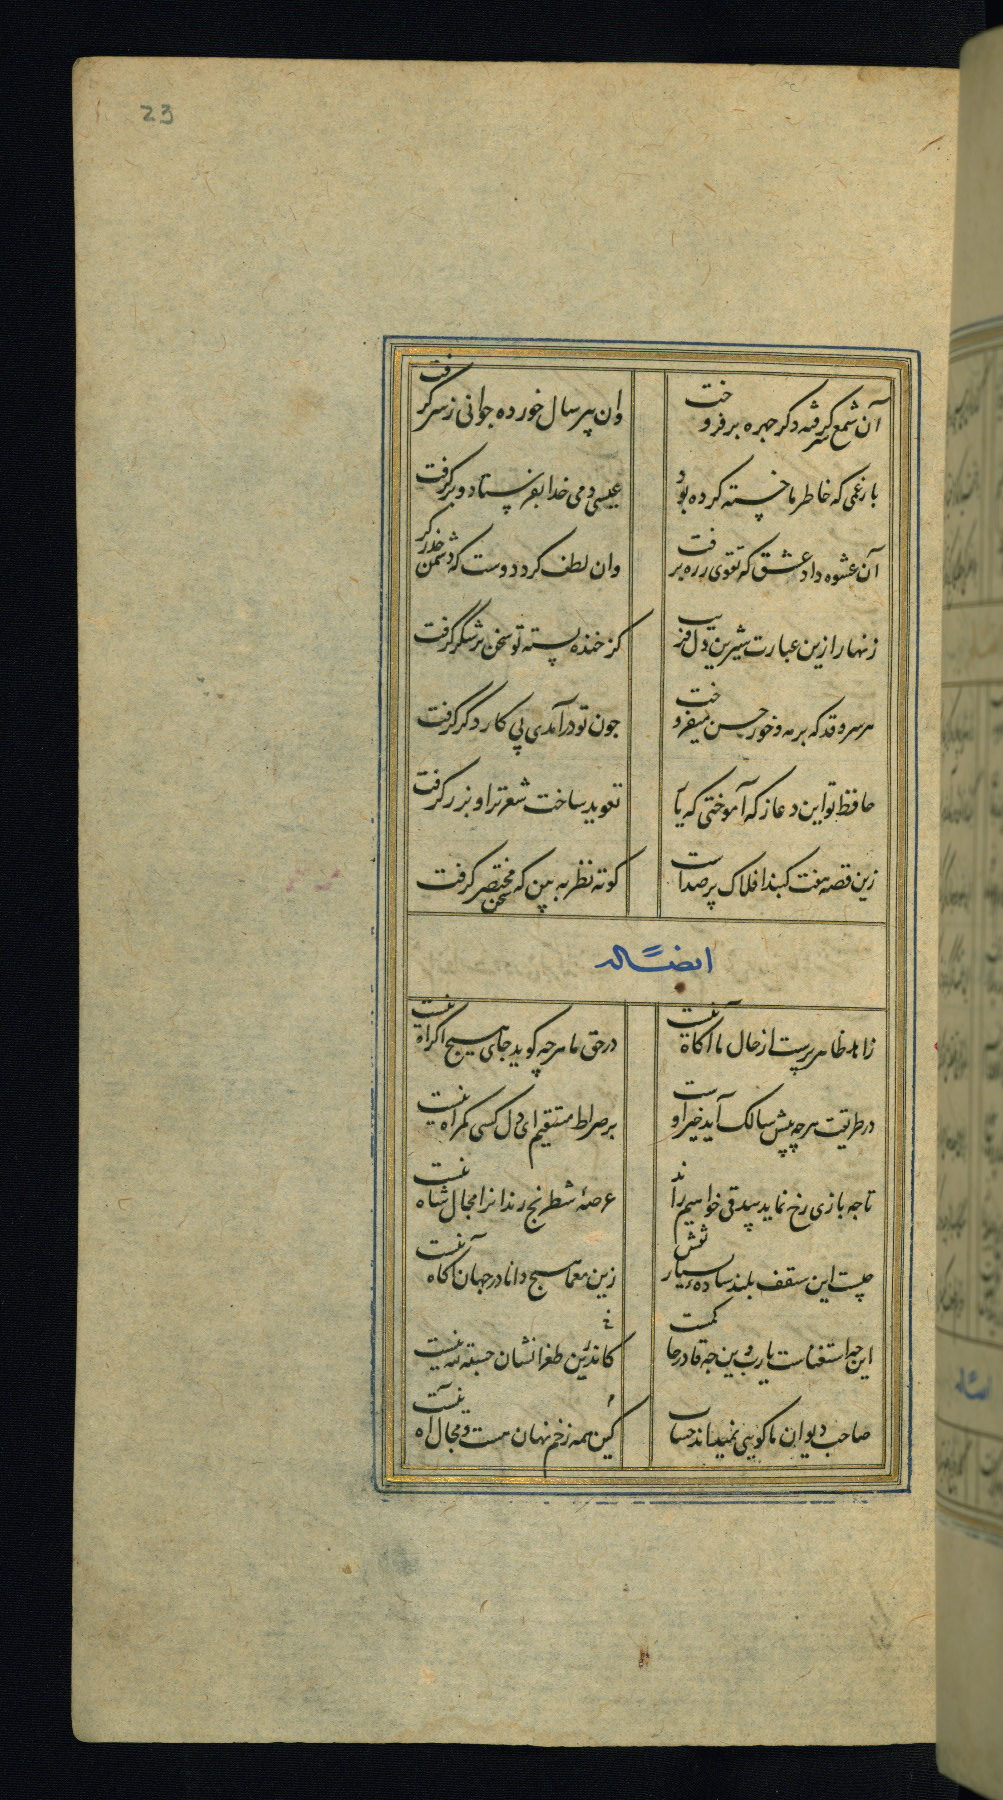 23
آن شمع سرگرفته دگر چهره برفروخت
وان پیر سال خورده جوانی ز سر گرفت
بار غمی که خاطر ما خسته کرده بود
عیسی دمی خدا بفرستاد و برگرفت
آن عشوه داد عشق که تقوی ز ره برفت
وان لطف کرد دوست که دشمن حذر گرفت
زنهار ازین عبارت شیرین دل فریب
کز خنده پسته تو سخن در شکر گرفت
هر سرو قد که بر مه و خور حسن میفروخت
چون تو درآمدی پی کار دگر گرفت
حافظ تو این دعا ز که آموختی که یار
تعوید ساخت شعر ترا و بزر گرفت
زین قصه هفت گنبد افلاک پر صداست
کوته نظر به بین که سخن مختصر گرفت
ایضاً له
زاهد ظاهر پرست از حال ما آگاه نیست
در حق ما هرچه گوید جای هیچ اکراه نیست
در طریقت هرچه پیش سالک آید خیر اوست
بر صراط مستقیم ای دل کسی گمراه نیست
تا چه بازی رخ نماید بیدقی خواهیم راند
عرصهٔ شطرنج رندانرا مجال شاه نیست
چیست این سقف بلند ساده بسیار نقش
زین معما هیچ دانا در جهان آگاه نیست
این چه استغناست یارب وین چه قادر حاکمست
کاندرین طغرا نشان حسبة لله نیست
صاحب دیوان ما گویی نمیداند حساب
کین همه زخم نهان هست و مجال آه نیست